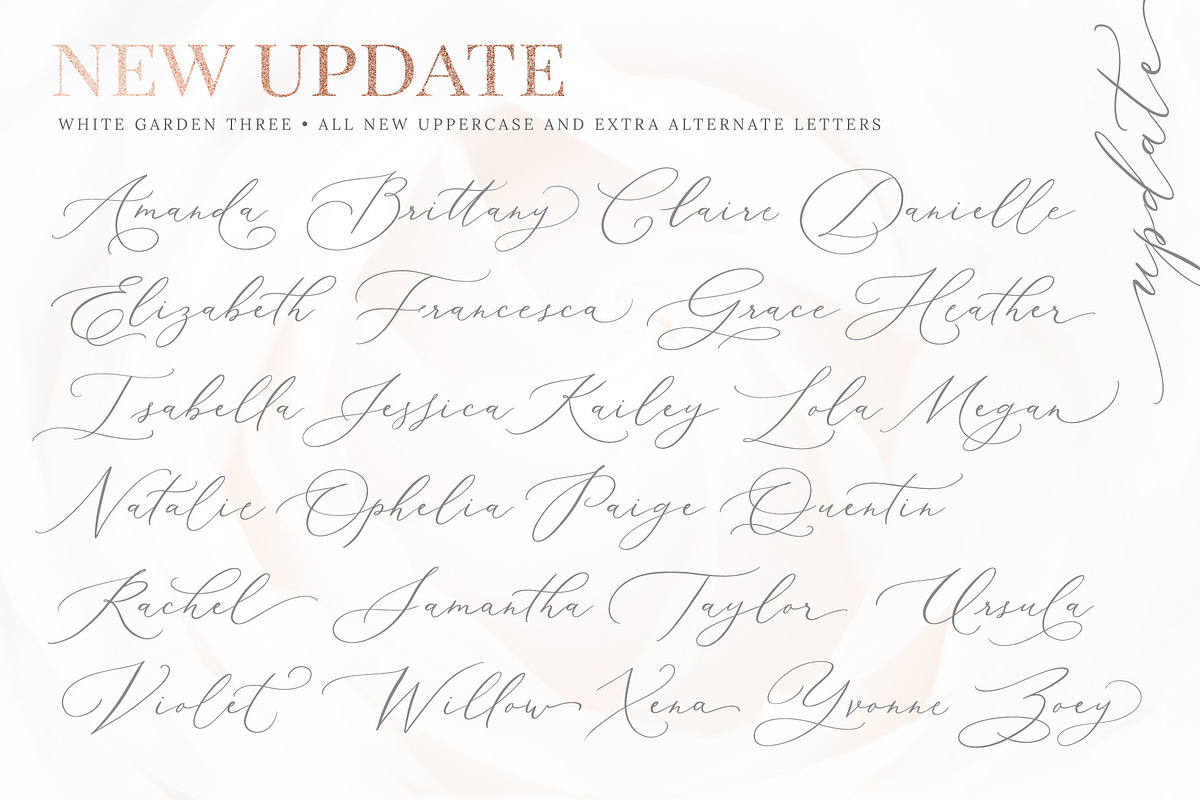 NEW UPDATE
WHITE GARDEN THREE • ALL NEW UPPERCASE AND EXTRA ALTERNATE LETTERS
update
Amanda Brittany Claire Danielle
Elizabeth Francesca Grace Heather
Isabella Jessica Kailey Lola Megan
Natalie Ophelia Paige Quentin
Rachel Samantha Taylor Ursula
Violet Willow Xena Yvonne Zoey